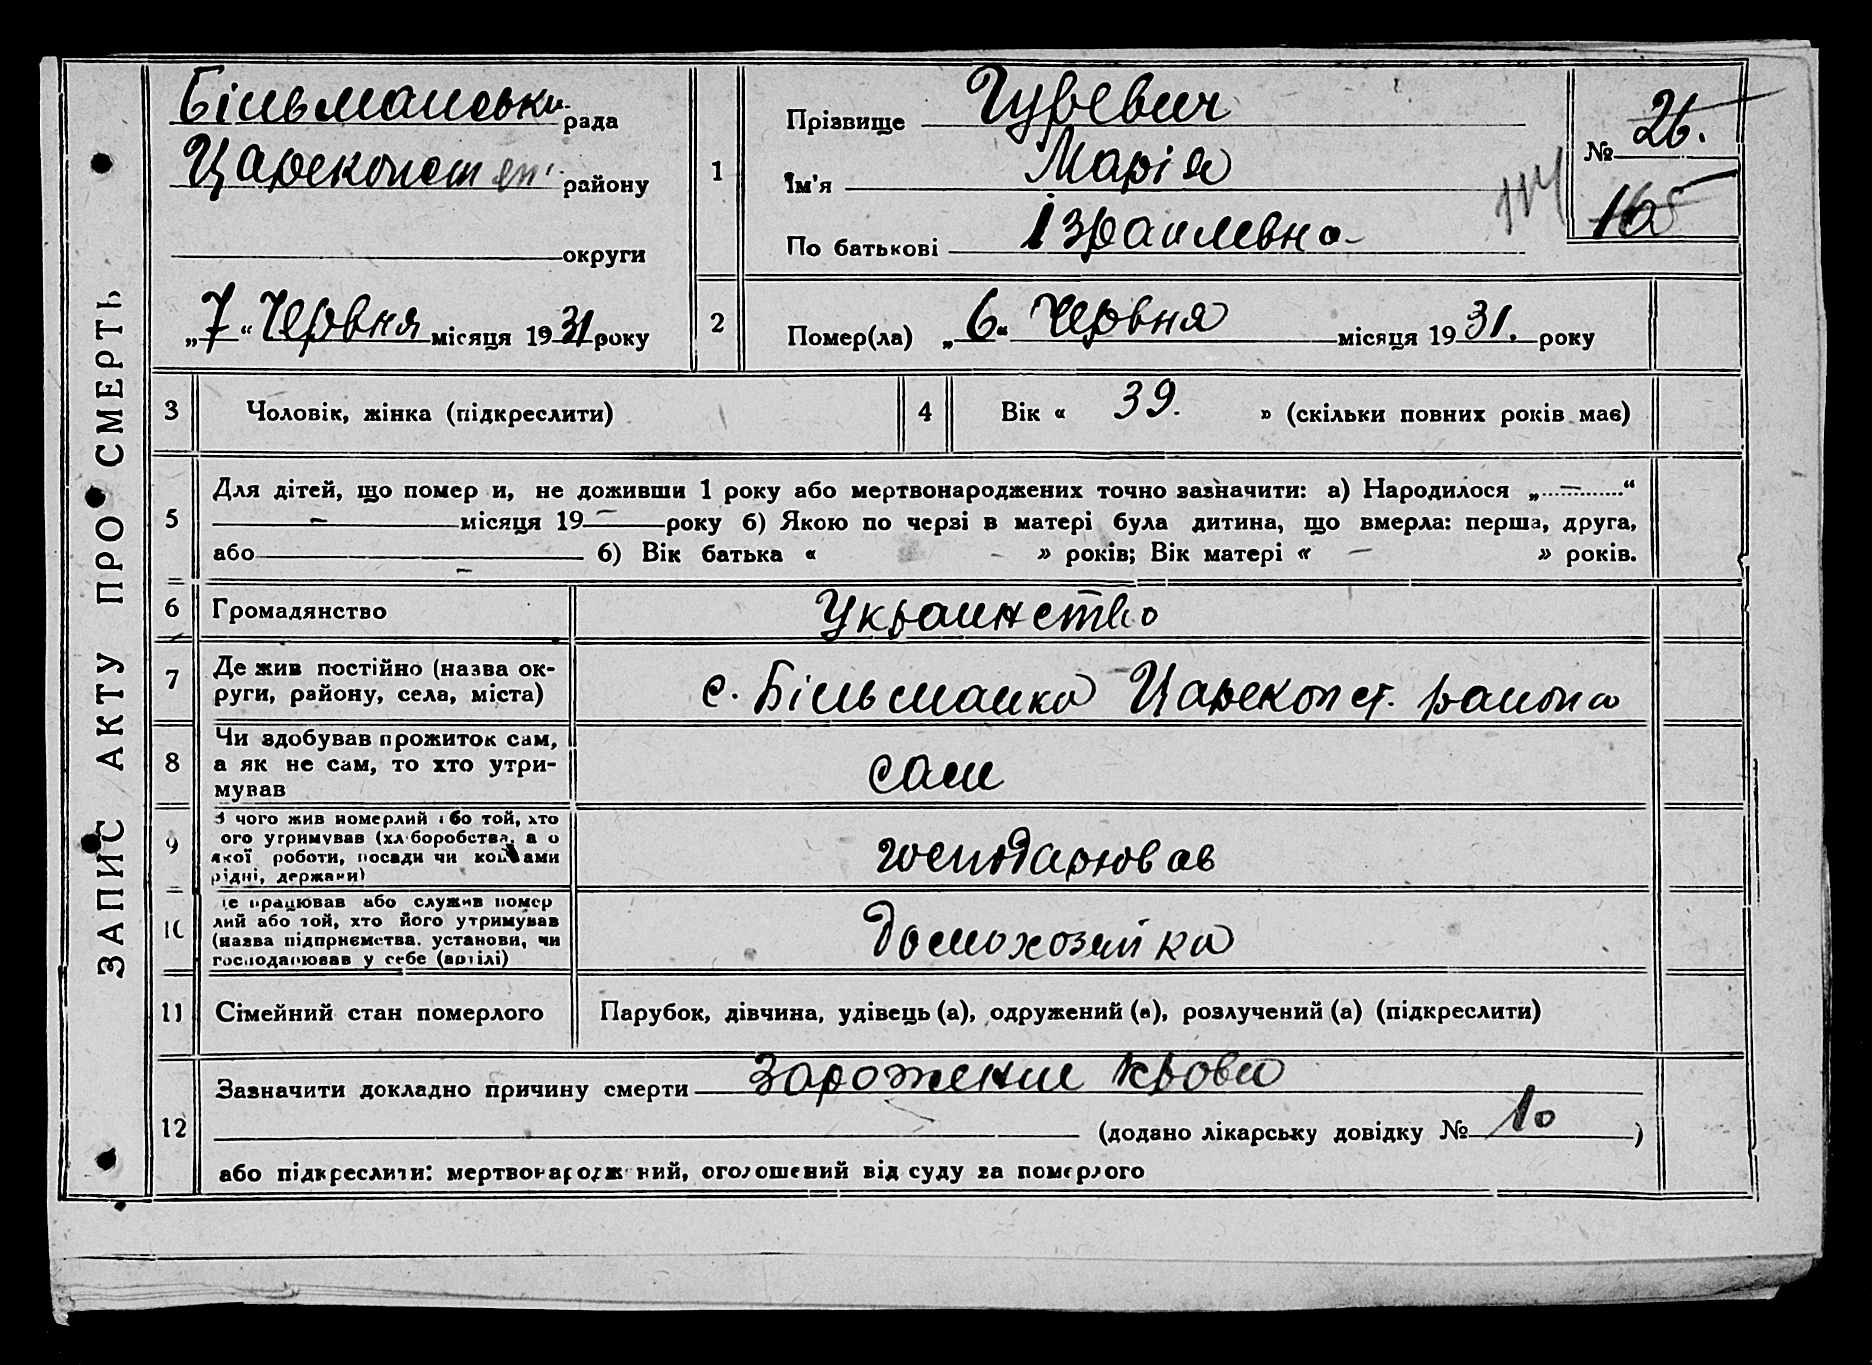 ЗАПИС АКТУ ПРО СМЕРТЬ
Більманськи рада
Царекопст району
округи
„7“ Червня місяця 1931 року
1
Прізвище Гуревич
Ім'я Марія
По батькові Ізраилевна
№ 26.
165
2
Помер(ла) „6“ Червня місяця 1931. року
3 Чоловік, жінка (підкреслити)
4 Вік « 39. » (скільки повних років має)
5
Для дітей, що помер и, не доживши 1 року або мертвонароджених точно зазначити: а) Народилося „—“
— місяця 19— року б) Якою по черзі в матері була дитина, що вмерла: перша, друга,
або — б) Вік батька « - » років; Вік матері « — » років.
6 Громадянство Украинство
7 Де жив постійно (назва ок-
руги, району, села, міста)
с. Більманка Царекопст. района
8 Чи здобував прожиток сам,
а як не сам, то хто утри-
мував
сам
9 З чого жив померлий або той, хто
ого утримував (хл боробства, а о
якої роботи, посади чи коштами
рідні, держави)
господарював
10 Де працював або служив помер
лий або той, хто його утримував
(назва підприємства, установи, чи
господарював у себе (артілі)
домохозяйка
11 Сімейний стан померлого Парубок, дівчина, удівець (а), одружений (а), розлучений (а) (підкреслити)
12
Зазначити докладно причину смерти Зарожении крови
(додано лікарську довідку № 10)
або підкреслити: мертвонароджений, оголошений від суду за померлого